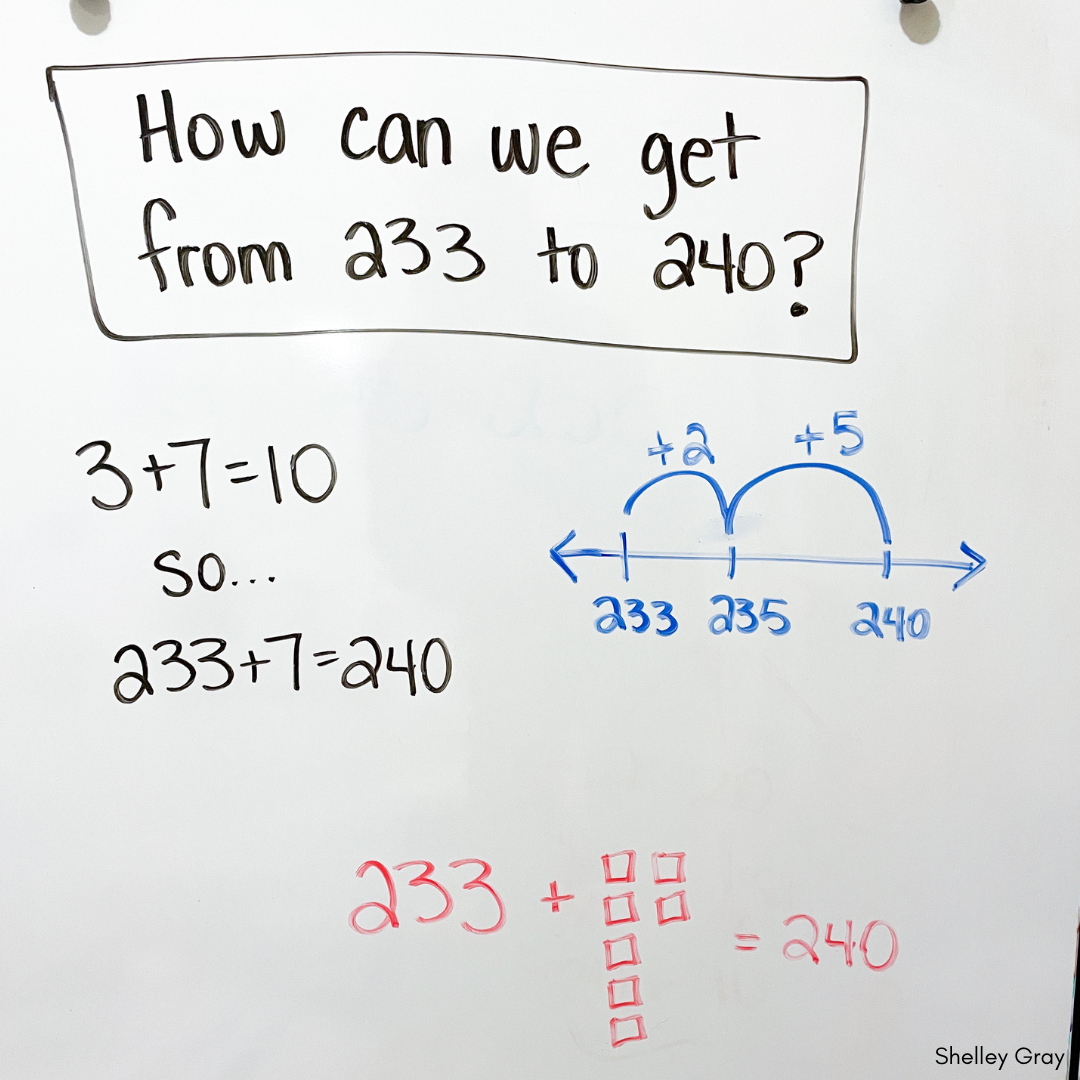 How can we get
from 233 to 240?
3+7=10
so...
233+7=240
+2 +5
233 235 240
233 + = 240
Shelley Gray